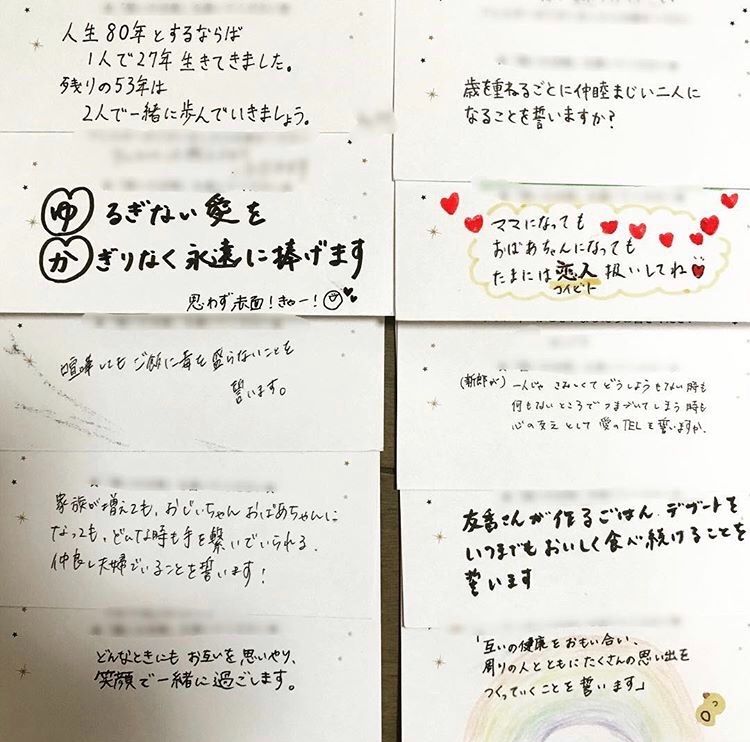 人生80年とするならば
1人で27年生きてきました。
残りの53年は
2人で一緒に歩んでいきましょう。
ゆるぎない愛を
かぎりなく永遠に捧げます
思わず赤面！きゃー！
喧嘩してもご飯に毒を盛らないことを
誓います。
家族が増えても、おじいちゃんおばあちゃんに
なっても、どんな時も手を繋いでいられる、
仲良し夫婦でいることを誓います！
どんなときにもお互いを思いやり、
笑顔で一緒に過ごします。
歳を重ねるごとに仲睦まじい二人に
なることを誓いますか？
ママになっても
おばあちゃんになっても
たまには恋人扱いしてね
コイビト
(新郎が) 一人じゃさみしくてどうしようもない時も
何もないところでつまづいてしまう時も
心の支えとして愛のTELを誓いますか。
友香さんが作るごはん、デザートを
いつまでもおいしく食べ続けることを
誓います
「互いの健康をおもい合い、
周りの人とともにたくさんの思い出を
つくっていくことを誓います」